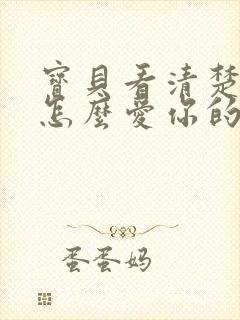 寶貝看清楚
怎麼愛你的
蛋蛋妈